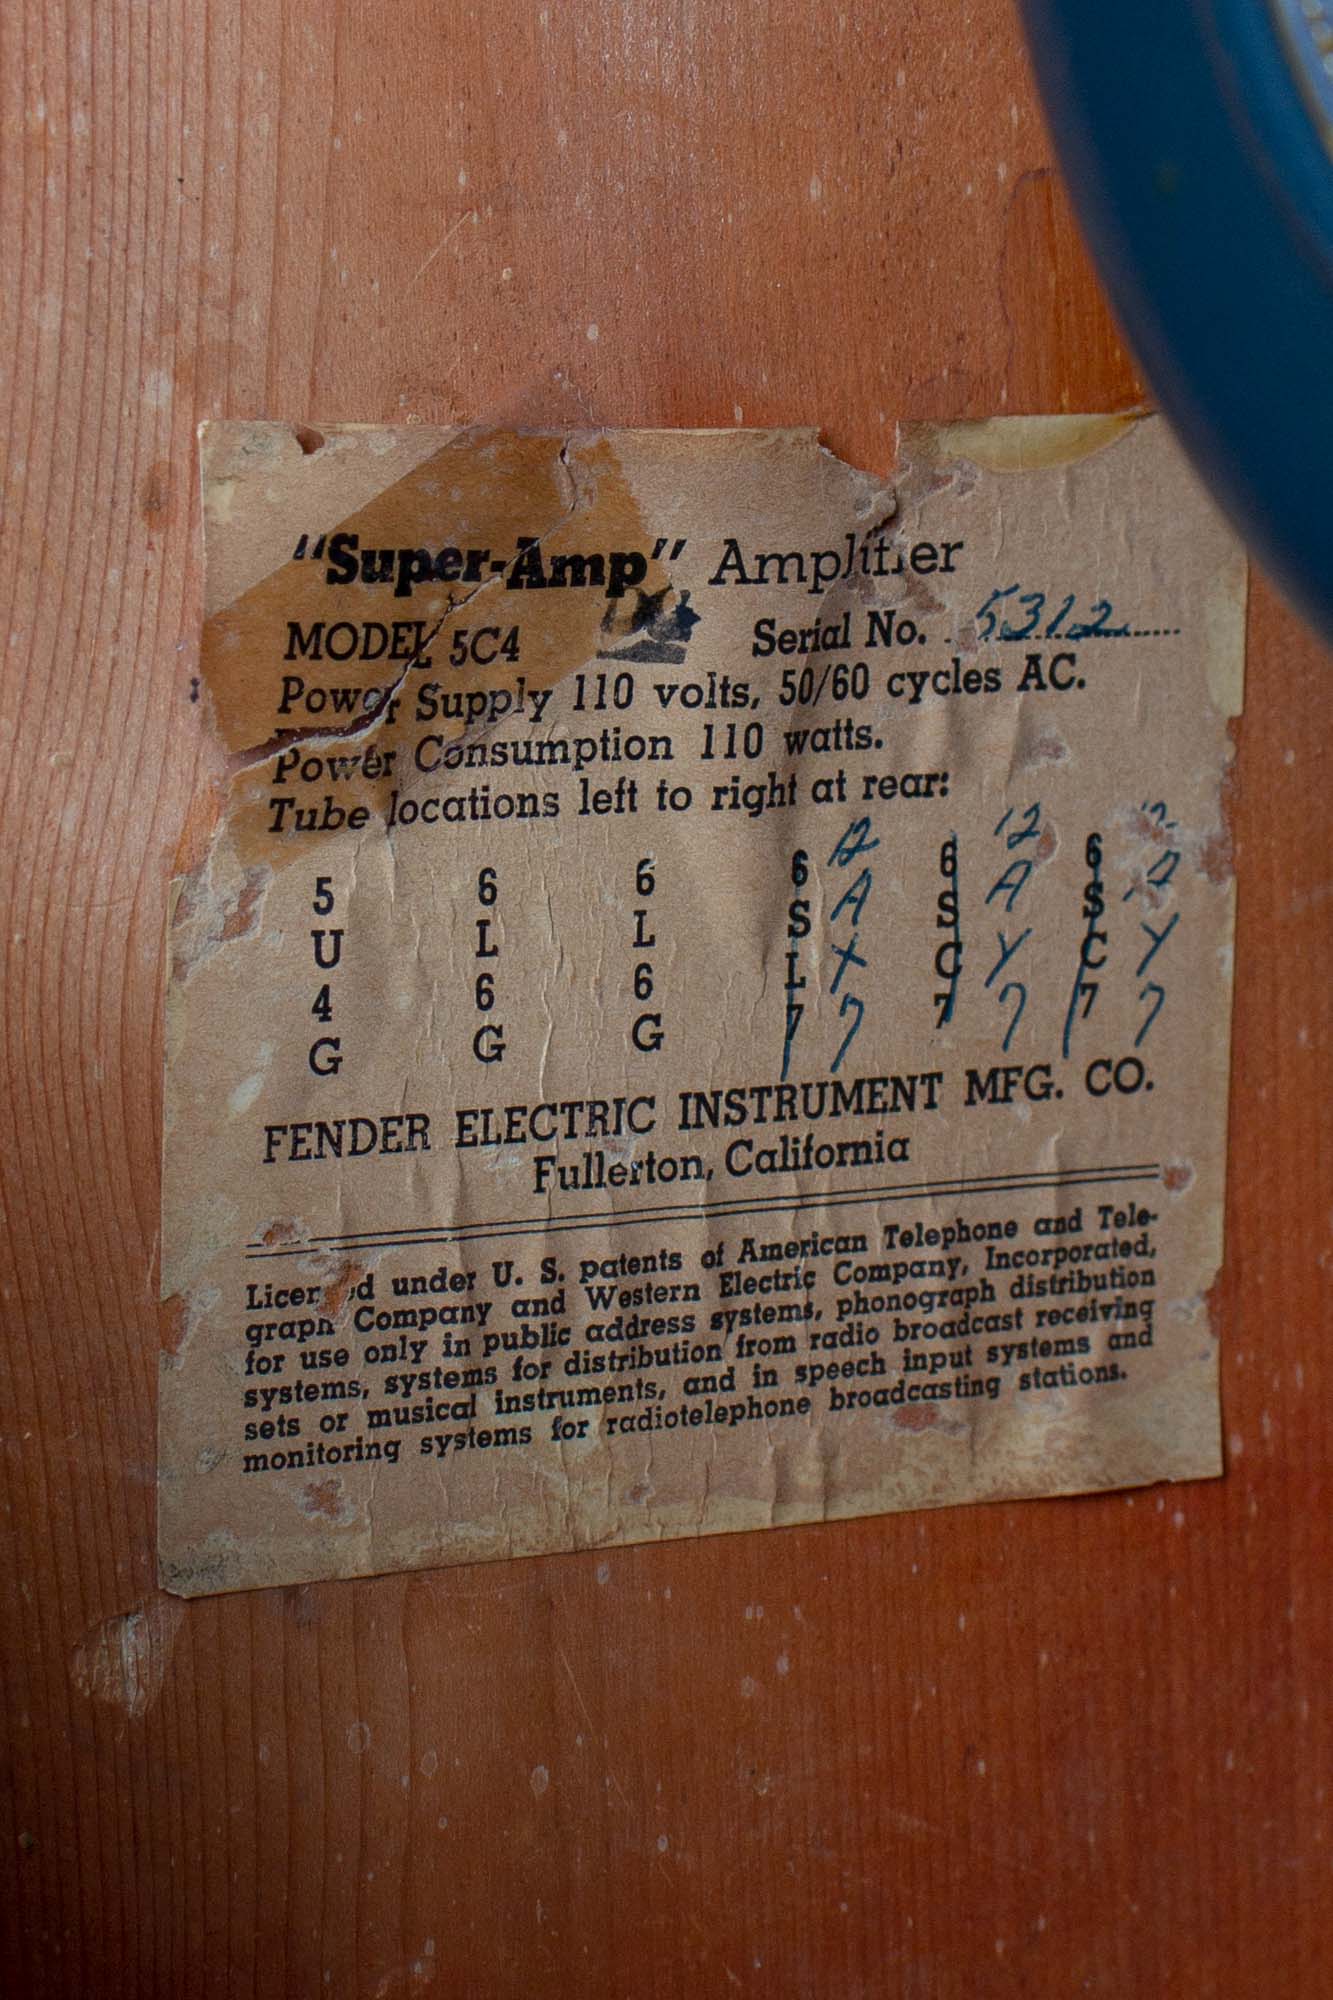 "Super-Amp" Amplifier
MODEL 5C4 Serial No. 5312
Power Supply 110 volts, 50/60 cycles AC.
Power Consumption 110 watts.
Tube locations left to right at rear:
12 12 12
5 6 6 6 A 6 A 6
U L L S S S
4 6 6 L X C Y C Y
G G G 7 7 7 7 7 7
FENDER ELECTRIC INSTRUMENT MFG. CO.
Fullerton, California
Licensed under U. S. patents of American Telephone and Tele-
graph Company and Western Electric Company, Incorporated,
for use only in public address systems, phonograph distribution
systems, systems for distribution from radio broadcast receiving
sets or musical instruments, and in speech input systems and
monitoring systems for radiotelephone broadcasting stations.